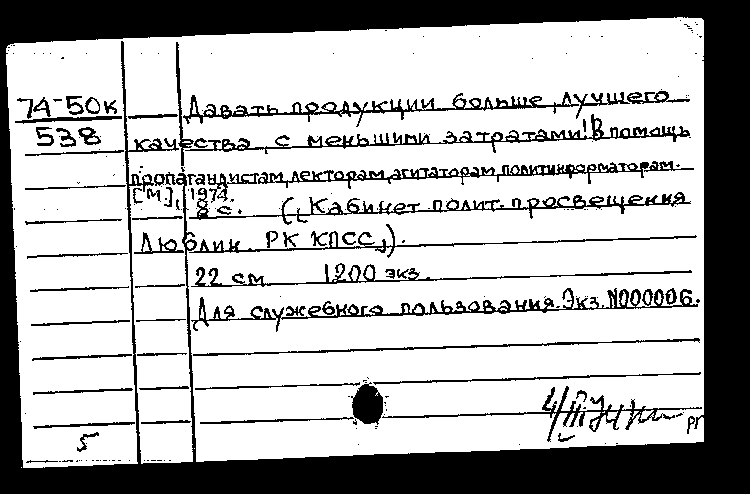 74-50к
538
Давать продукции больше, лучшего
качества, с меньшими затратами! В помощь
пропагандистам, лекторам, агитаторам, политинформаторам.
[М.], 1974.
8 с. (Кабинет полит. просвещения
Люблин. РК КПСС).
22 см 1200 экз.
Для служебного пользования. Экз. N000006.
5
4/III
рг